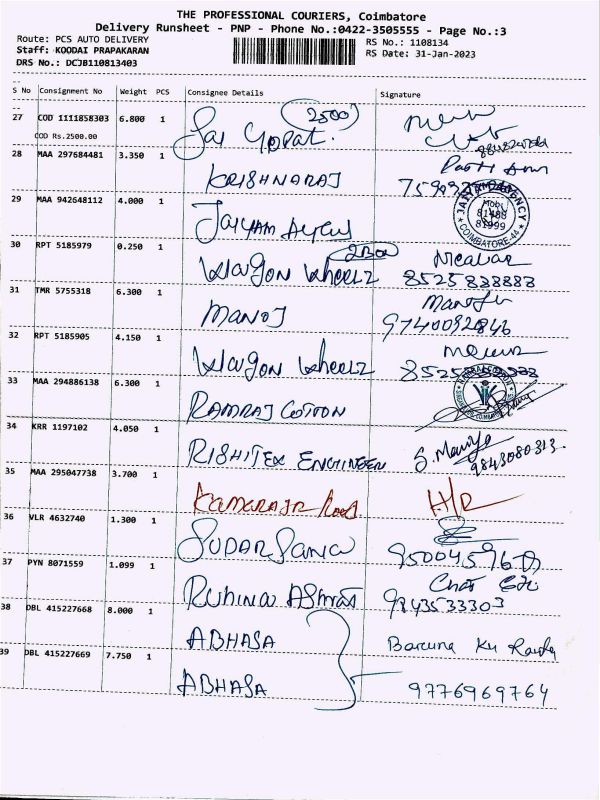 THE PROFESSIONAL COURIERS, Coimbatore
Delivery Runsheet - PNP - Phone No.:0422-3505555 - Page No.:3
Route: PCS AUTO DELIVERY
RS No.: 1108134
Staff: KOODAI PRAPAKARAN
RS Date: 31-Jan-2023
DRS No.: DCJB110813403
S No Consignment No Weight PCS Consignee Details Signature
2500
27 COD 1111858303 6.800 1 Jai Gopal.
COD Rs.2500.00
28 MAA 297684481 3.350 1 KRISHNARAJ
29 MAA 942648112 4.000 1 JAIYAM
JAIYAM AGENCY
Mobi
81488
81999
COIMBATORE-44
30 RPT 5185979 0.250 1 Wagon Wheelz
8525838883
31 TMR 5755318 6.300 1 MANOJ
9740092846
32 RPT 5185905 4.150 1 Wagon Wheelz
33 MAA 294886138 6.300 1 RAMRAJ COTTON
34 KRR 1197102 4.050 1 RISHITEX ENGINEER
9843080313
35 MAA 295047738 3.700 1 KAMARAJR Road H/R
36 VLR 4632740 1.300 1 SUDARSANA
37 PYN 8071559 1.099 1 RUHINA
9843533303
38 DBL 415227668 8.000 1 ABHASA Baruna Ku
39 DBL 415227669 7.750 1 ABHASA 9776969764